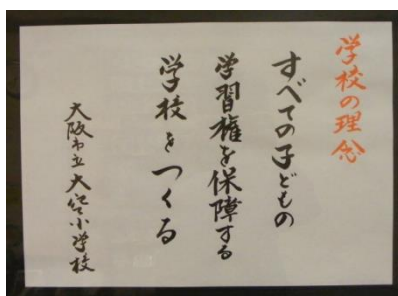 学校の理念
すべての子どもの
学習権を保障する
学校をつくる
大阪市立大空小学校